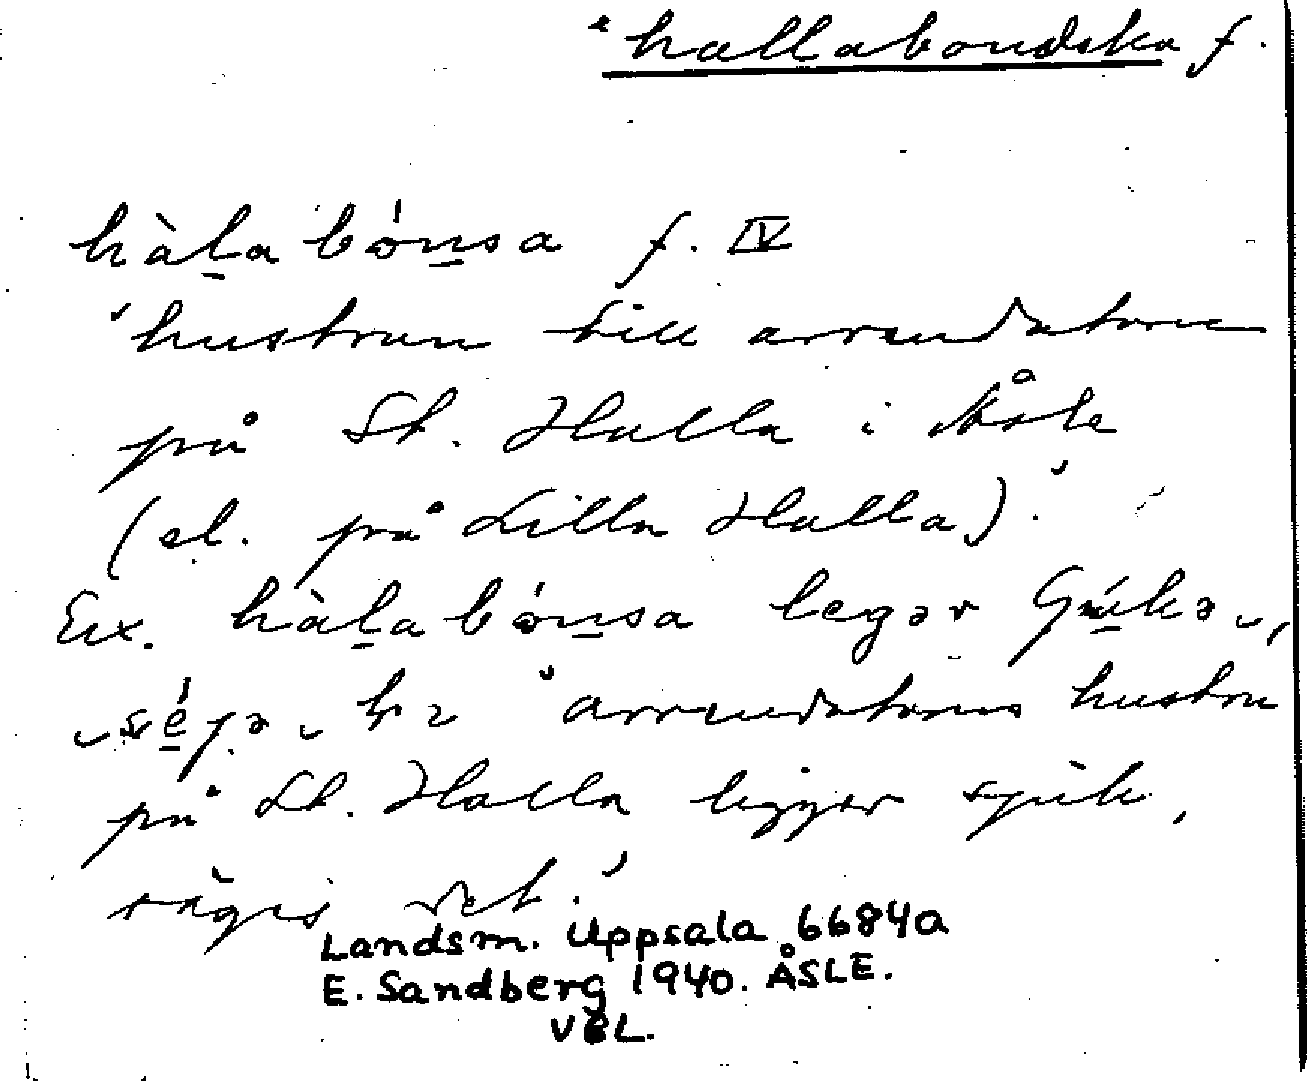 *hallabondska f.
hàḻa bón̲sa f. IV
'hustrun till arrendatorn
på St. Halla i Åsle
(el. på Lilla Halla).'
Ex. hàḻa bón̲sa legər
hr 'arrendatorns hustru
på St. Halla ligger sjuk,
sägs det.'
Landsm. Uppsala 6684a
E. Sandberg 1940. ÅSLE.
VGL.